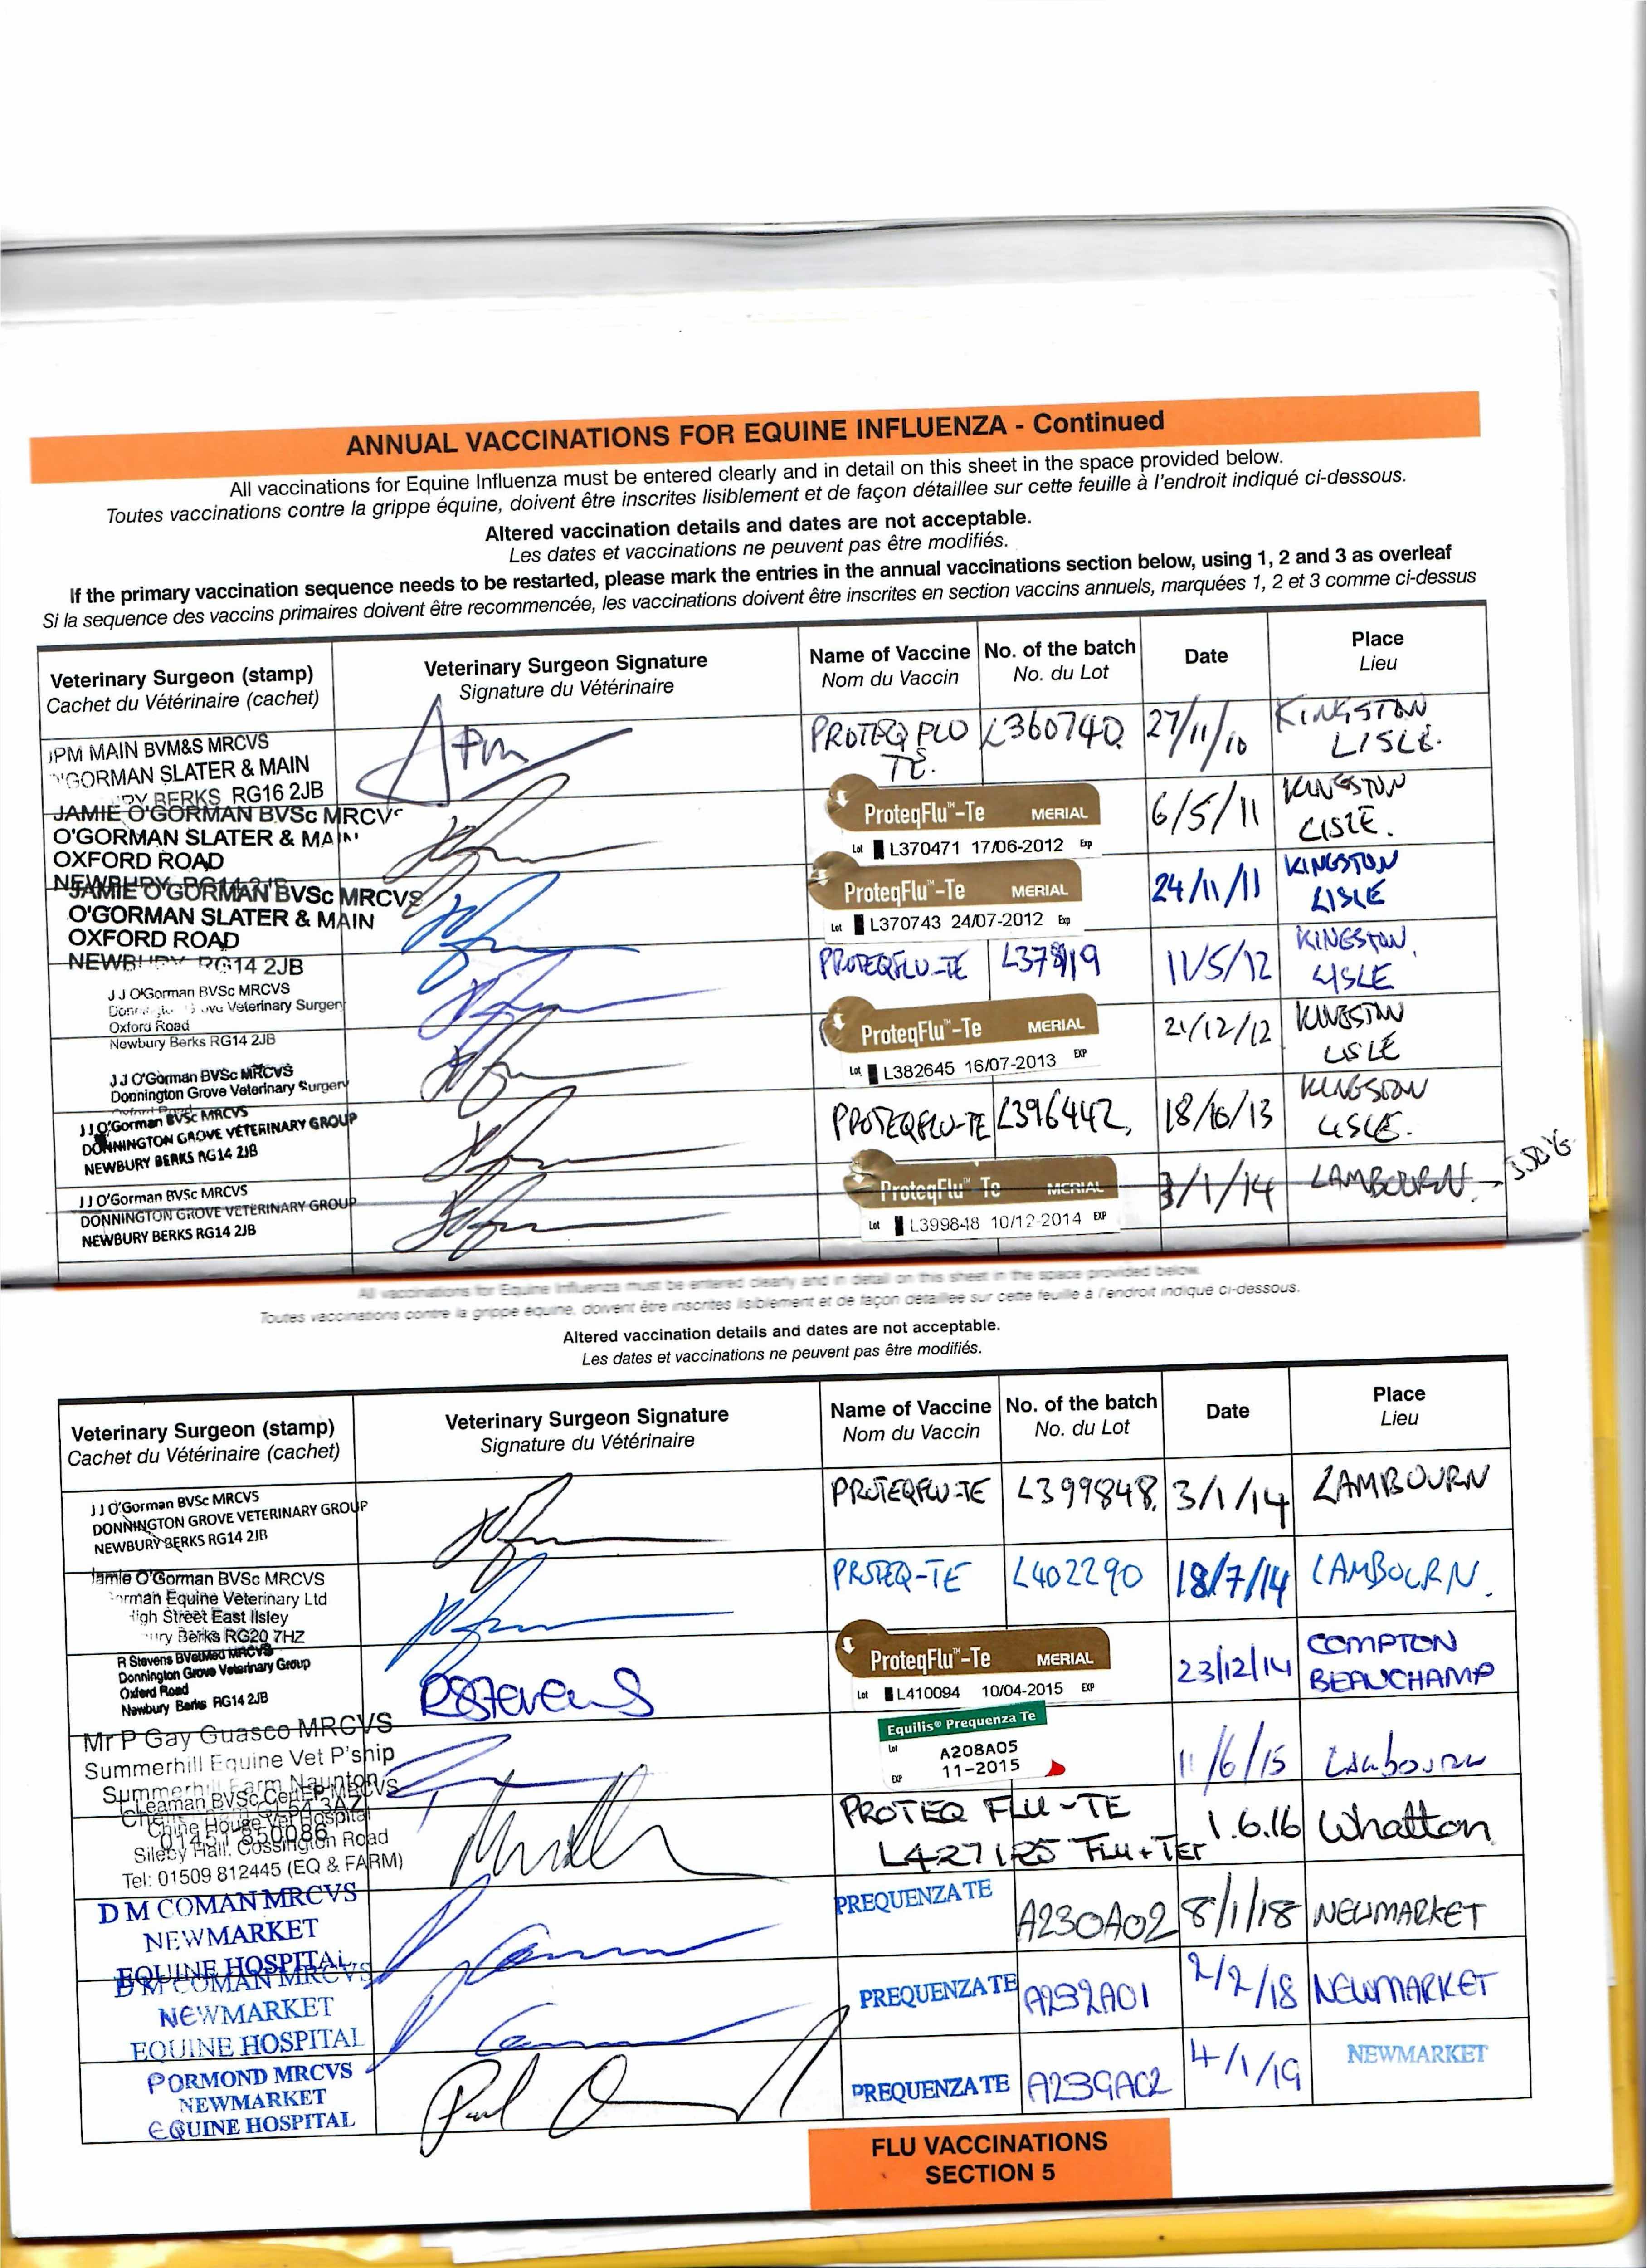 ANNUAL VACCINATIONS FOR EQUINE INFLUENZA - Continued
All vaccinations for Equine Influenza must be entered clearly and in detail on this sheet in the space provided below.
Toutes vaccinations contre la grippe équine, doivent être inscrites lisiblement et de façon détaillee sur cette feuille à l'endroit indiqué ci-dessous.
Altered vaccination details and dates are not acceptable.
Les dates et vaccinations ne peuvent pas être modifiés.
If the primary vaccination sequence needs to be restarted, please mark the entries in the annual vaccinations section below, using 1, 2 and 3 as overleaf
Si la sequence des vaccins primaires doivent être recommencée, les vaccinations doivent être inscrites en section vaccins annuels, marquées 1, 2 et 3 comme ci-dessus
Veterinary Surgeon (stamp)
Cachet du Vétérinaire (cachet)
Veterinary Surgeon Signature
Signature du Vétérinaire
Name of Vaccine
Nom du Vaccin
No. of the batch
No. du Lot
Date
Place
Lieu
JPM MAIN BVM&S MRCVS
O'GORMAN SLATER & MAIN
BERKS RG16 2JB
PROTEQ FLU
TE.
L360740
27/11/10
KINGSTON
LISLE.
JAMIE O'GORMAN BVSc MRCVS
O'GORMAN SLATER & MAIN
OXFORD ROAD
NEWBURY RG14 2JB
ProteqFlu™-Te MERIAL
Lot L370471 17/06-2012 Exp
6/5/11
KINGSTON
LISLE.
JAMIE O'GORMAN BVSc MRCVS
O'GORMAN SLATER & MAIN
OXFORD ROAD
NEWBURY RG14 2JB
ProteqFlu™-Te MERIAL
Lot L370743 24/07-2012 Exp
24/11/11
KINGSTON
LISLE
J J O'Gorman BVSc MRCVS
Donnington Grove Veterinary Surgery
Oxford Road
Newbury Berks RG14 2JB
PROTEQFLU-TE
11/5/12
KINGSTON
LISLE
J J O'Gorman BVSc MRCVS
Donnington Grove Veterinary Surgery
ProteqFlu™-Te MERIAL
Lot L382645 16/07-2013 EXP
21/12/12
KINGSTON
LISLE
J J O'Gorman BVSc MRCVS
DONNINGTON GROVE VETERINARY GROUP
NEWBURY BERKS RG14 2JB
PROTEQFLU-TE
L396442.
KINGSTON
LISLE.
J J O'Gorman BVSc MRCVS
DONNINGTON GROVE VETERINARY GROUP
NEWBURY BERKS RG14 2JB
ProteqFlu™-Te MERIAL
Lot L399848 10/12-2014 EXP
3/1/14
LAMBOURN.
All vaccinations for Equine Influenza must be entered clearly and in detail on this sheet in the space provided below.
Toutes vaccinations contre la grippe équine, doivent être inscrites lisiblement et de façon détaillee sur cette feuille à l'endroit indiqué ci-dessous.
Altered vaccination details and dates are not acceptable.
Les dates et vaccinations ne peuvent pas être modifiés.
Veterinary Surgeon (stamp)
Cachet du Vétérinaire (cachet)
Veterinary Surgeon Signature
Signature du Vétérinaire
Name of Vaccine
Nom du Vaccin
No. of the batch
No. du Lot
Date
Place
Lieu
J J O'Gorman BVSc MRCVS
DONNINGTON GROVE VETERINARY GROUP
NEWBURY BERKS RG14 2JB
PROTEQFLU-TE
L399848.
3/1/14
LAMBOURN
Jamie O'Gorman BVSc MRCVS
Equine Veterinary Ltd
High Street East Ilsley
Berks RG20 7HZ
PROTEQ-TE
L402290
18/7/14
LAMBOURN.
R Stevens BVetMed MRCVS
Donnington Grove Veterinary Group
Oxford Road
Newbury Berks RG14 2JB
RSStevens
ProteqFlu™-Te MERIAL
Lot L410094 10/04-2015 EXP
23/12/14
COMPTON
BEAUCHAMP
Mr P Gay Guasco MRCVS
Summerhill Equine Vet P'ship
Summerhill Farm Naunton
GL54 3AZ
01451 850086
Equilis® Prequenza Te
Lot A208A05
EXP 11-2015
11/6/15
Lambourn
Leaman BVSc CertEP MRCVS
Chine House Vet Hospital
Sileby Hall. Cossington Road
Tel: 01509 812445 (EQ & FARM)
PROTEQ FLU-TE
L427125 FLU+TET
1.6.16
Whatton
D M COMAN MRCVS
NEWMARKET
EQUINE HOSPITAL
PREQUENZA TE
A230A02
8/1/18
NEWMARKET
D M COMAN MRCVS
NEWMARKET
EQUINE HOSPITAL
PREQUENZA TE
A232A01
2/2/18
NEWMARKET
P ORMOND MRCVS
NEWMARKET
EQUINE HOSPITAL
PREQUENZA TE
A239A02
4/1/19
NEWMARKET
FLU VACCINATIONS
SECTION 5